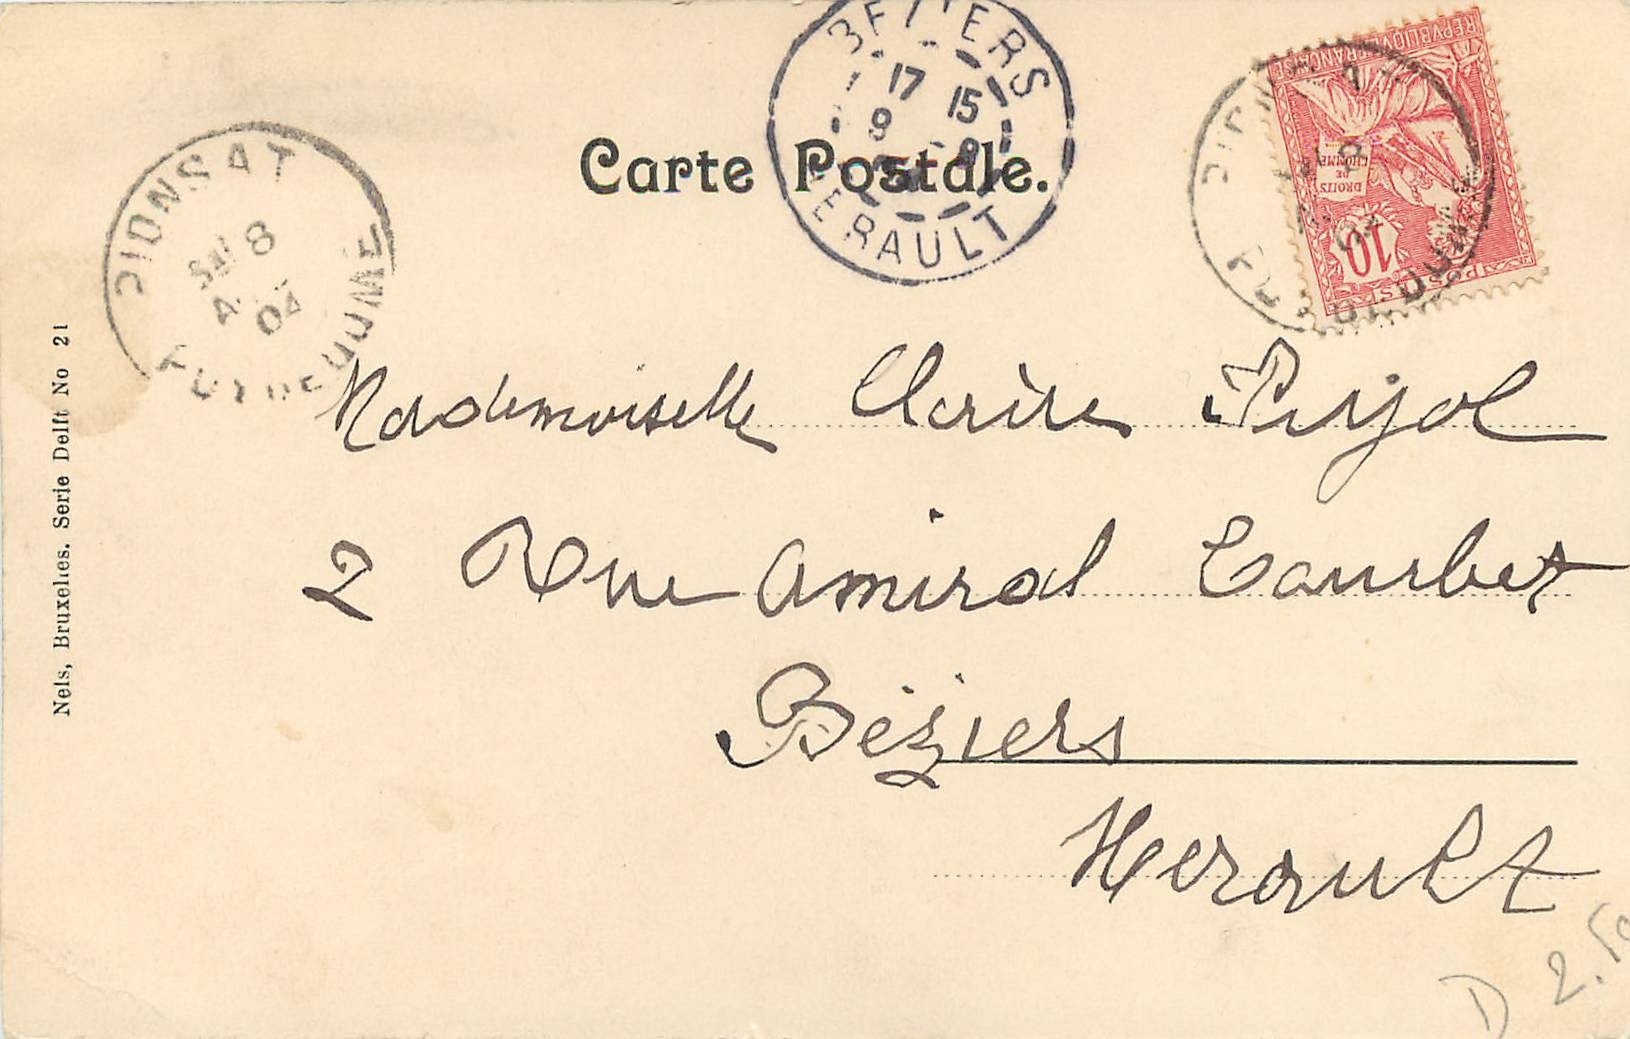 BEZIERS
17 15
9 -9
HERAULT
Carte Postale.
REPVBLIQVE FRANÇAISE
DROITS
DE
L'HOMME
10
POSTES
PIONSAT
8
4
04
PUY DE DOME
Nels, Bruxelles. Serie Delft No 21
Mademoiselle Claire Pujol
2 Rue Amiral Courbet
Béziers
Herault
D 2.50